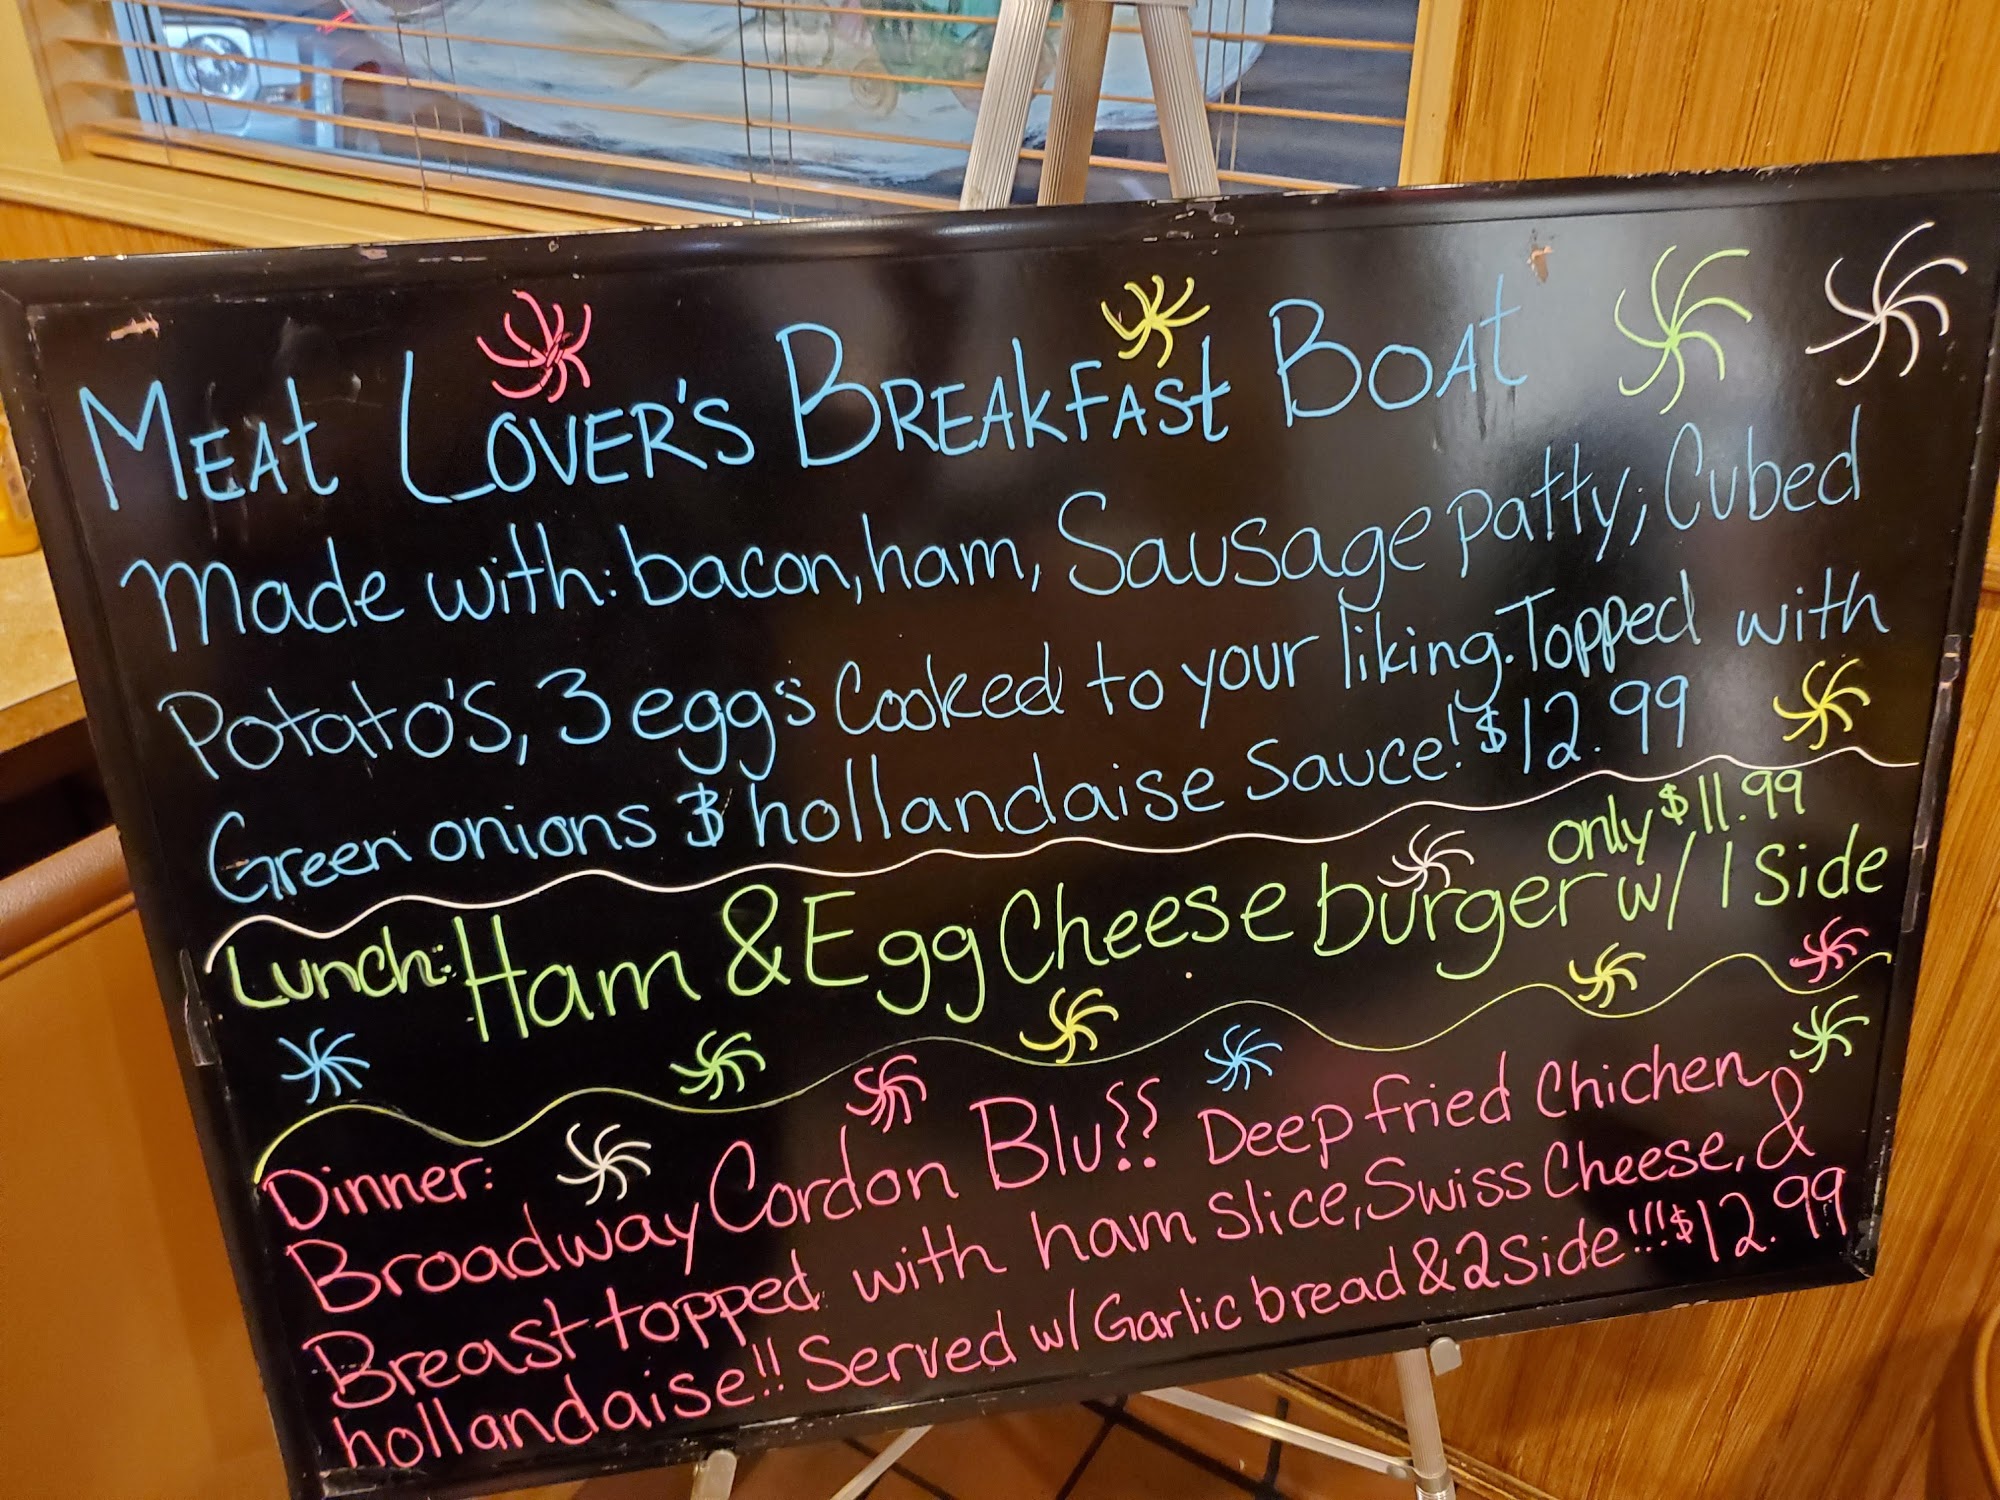 MEAt LOVER'S BREAKFASt BOAt
Made with: bacon, ham, Sausage patty, Cubed
Potato's, 3 eggs Cooked to your liking. Topped with
Green onions & hollandaise Sauce! $12.99
only $11.99
Lunch: Ham & Egg Cheese burger w/ 1 Side
Dinner:
Broadway Cordon Blu?? Deep fried Chichen
Breast topped with ham slice, Swiss Cheese, &
hollandaise!! Served w/ Garlic bread & 2 Side!!! $12.99